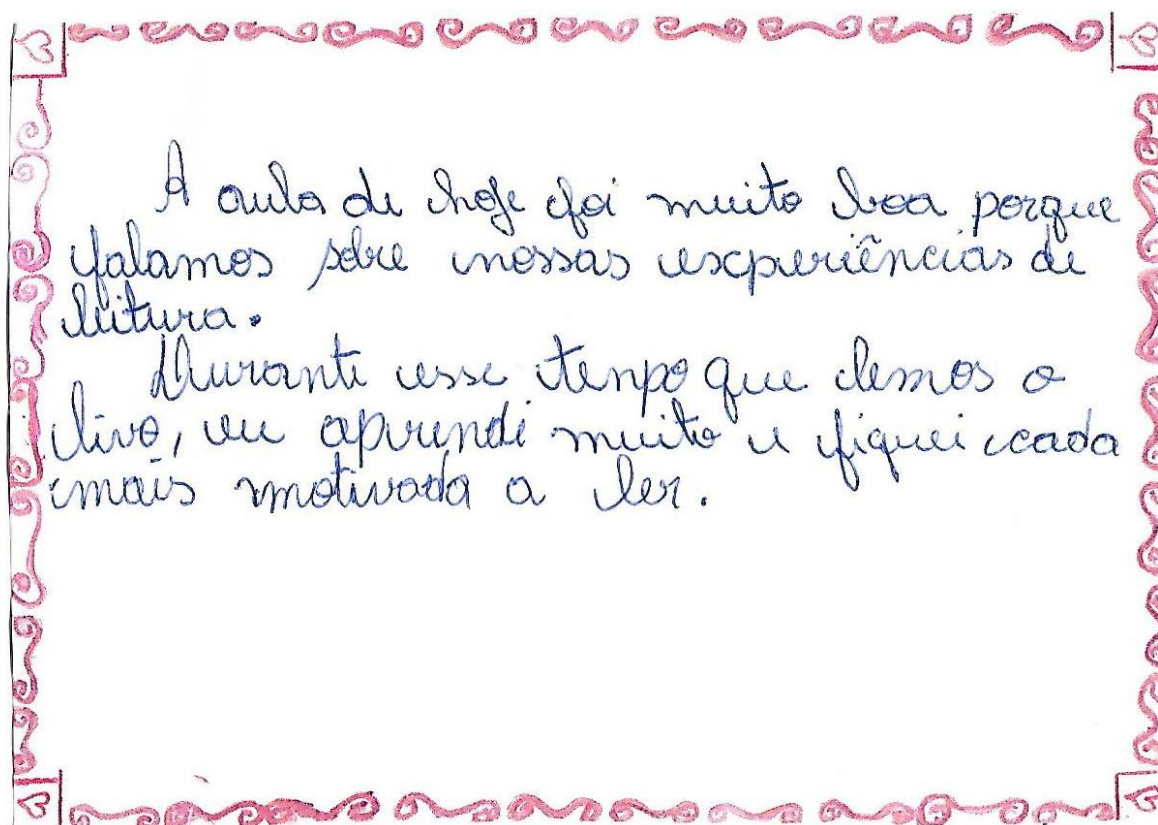 A aula de hoje foi muito boa porque
falamos sobre nossas experiências de
leitura.
Durante esse tenpo que lemos o
livo, eu aprendi muito e fiquei cada
mais motivada a ler.